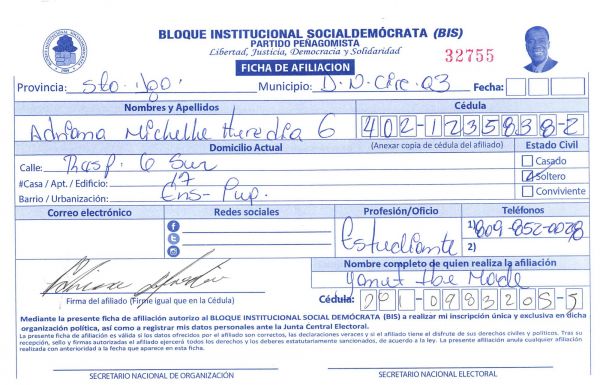 BLOQUE INSTITUCIONAL SOCIALDEMÓCRATA (BIS)
PARTIDO PEÑAGOMISTA
Libertad, Justicia, Democracia y Solidaridad
32755
FICHA DE AFILIACION
Provincia: Sto. Dgo. Municipio: D.N. Circ. 03 Fecha:
Nombres y Apellidos Cédula
Adriana Michelle Heredia G 402-1235838-2
Domicilio Actual (Anexar copia de cédula del afiliado) Estado Civil
Calle: Resp. 6 Sur Casado
#Casa / Apt. / Edificio: 17 Soltero
Barrio / Urbanización: Ens- Conviviente
Correo electrónico Redes sociales Profesión/Oficio Teléfonos
Estudiante 1) 809-852-0028
2)
Nombre completo de quien realiza la afiliación
Yanet
Firma del afiliado (Firme igual que en la Cédula) Cédula: 001-0983205-5
Mediante la presente ficha de afiliación autorizo al BLOQUE INSTITUCIONAL SOCIAL DEMÓCRATA (BIS) a realizar mi inscripción única y exclusiva en dicha
organización política, así como a registrar mis datos personales ante la Junta Central Electoral.
La presente ficha de afiliación es válida si los datos ofrecidos por el afiliado son correctos, las declaraciones veraces y si el afiliado tiene el disfrute de sus derechos civiles y políticos. Tras su
recepción, sello y firmas autorizadas el afiliado ejercerá todos los derechos y los deberes estatutariamente sancionados, de acuerdo a la ley. La presente afiliación anula cualquier afiliación
realizada con anterioridad a la fecha que aparece en esta ficha.
SECRETARIO NACIONAL DE ORGANIZACIÓN SECRETARIO NACIONAL ELECTORAL